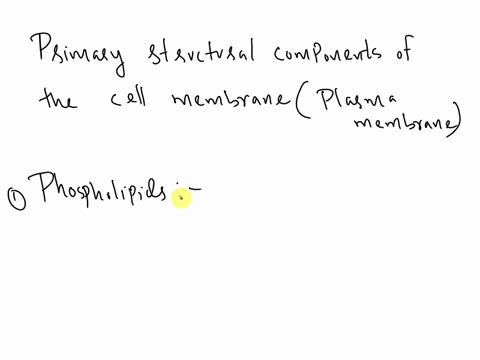 Primary structural components of
the cell membrane (Plasma
membrane)
① Phospholipids :-